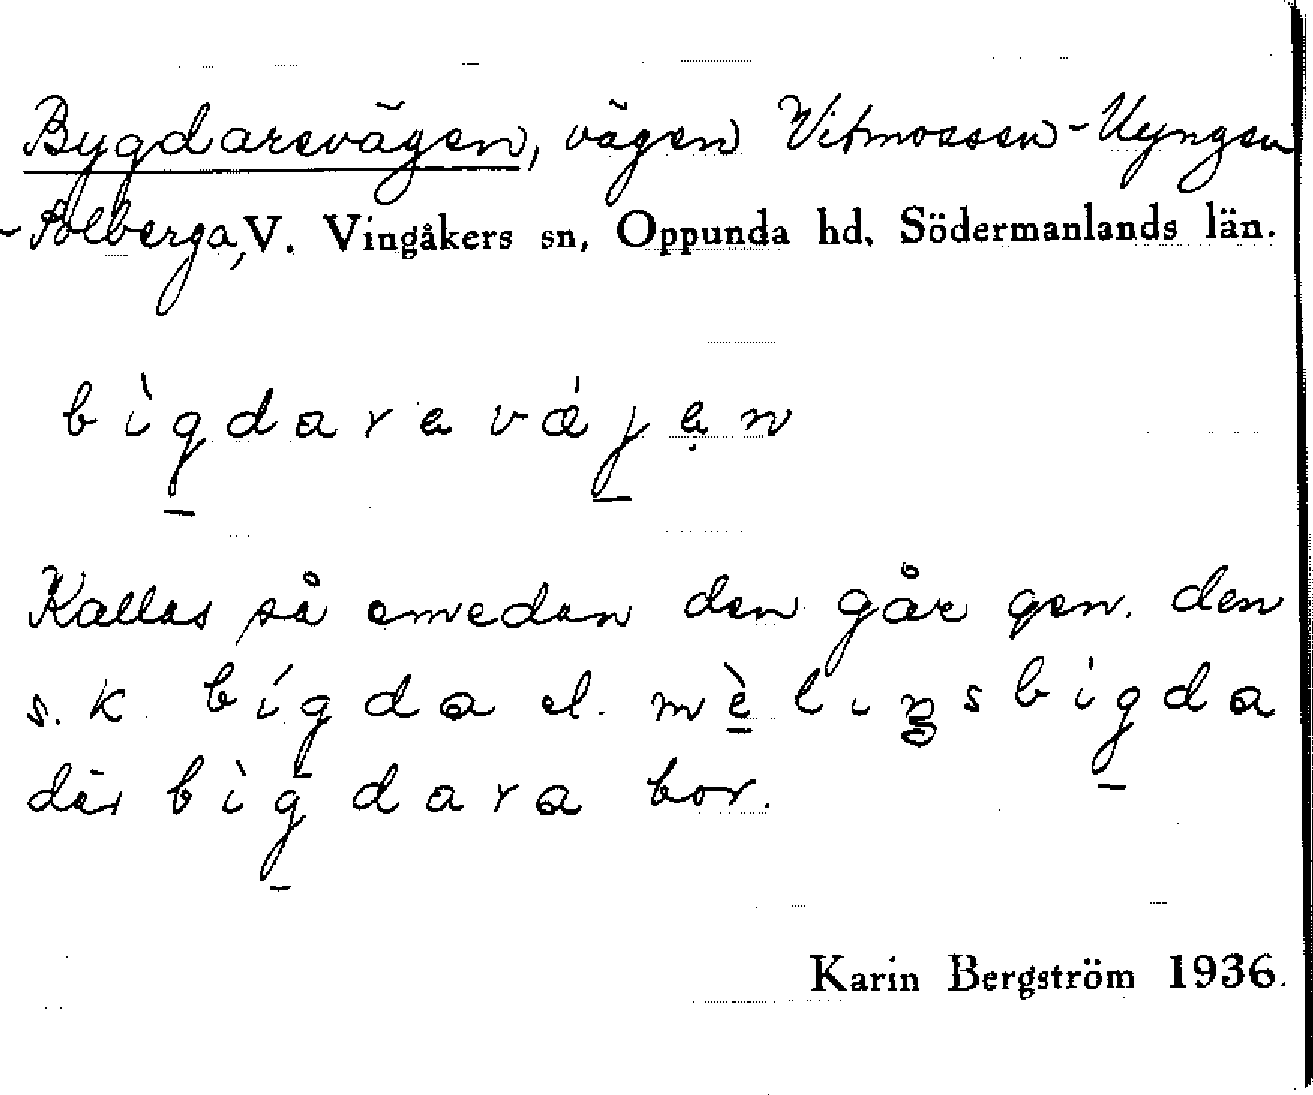 Bygdarevägen, vägen Vitmossen-Uyngen
-Solberga, V. Vingåkers sn, Oppunda hd, Södermanlands län.
bìgdarevǽjen
Kallas så emedan den går gen. den
s. k bígda el. mèliŋsbigda
där bìgdara bor.
Karin Bergström 1936.